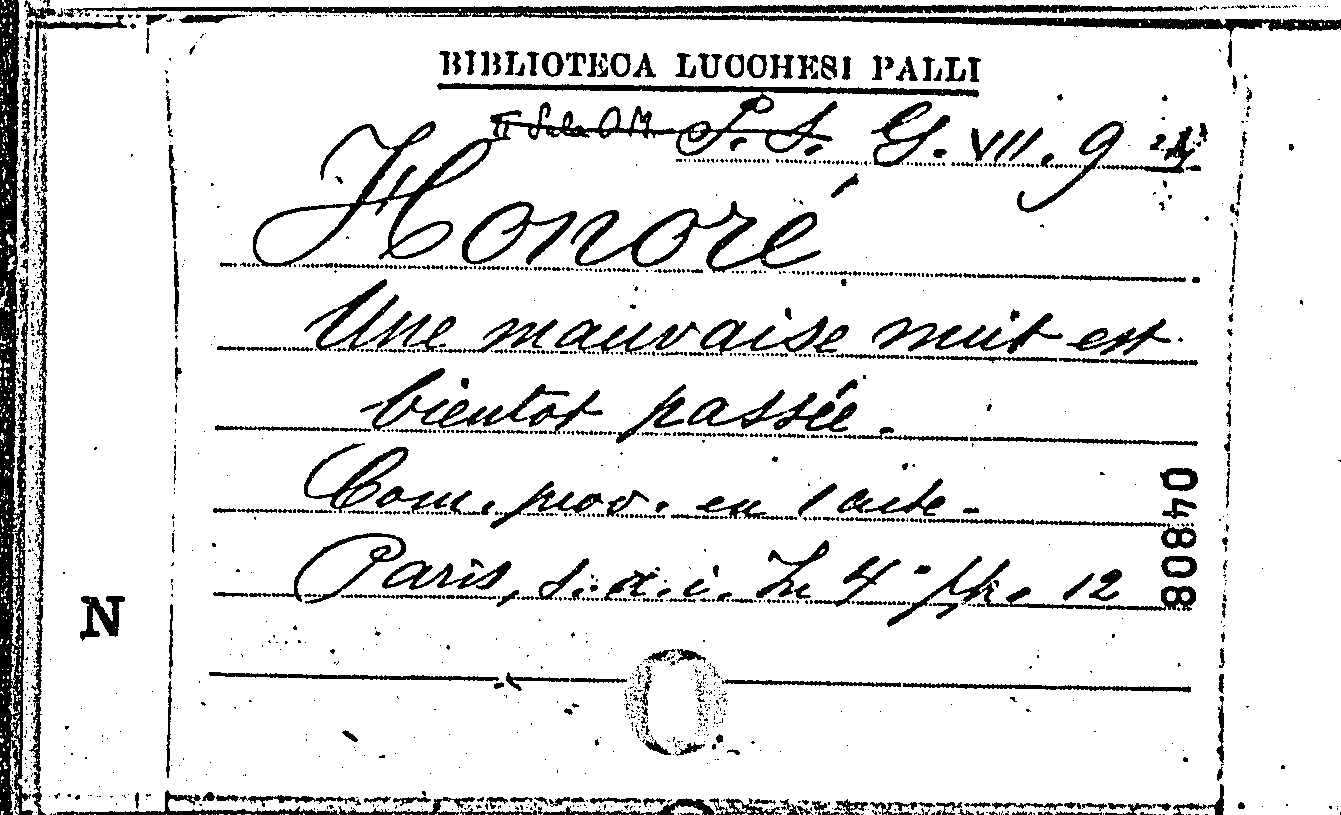 BIBLIOTECA LUCCHESI PALLI
II Sala P. S. G. VII. 9
Honoré
Une mauvaise nuit est
bientôt passée.
Com. prov. en 1 acte.
Paris, s. a. i. In 4° pp. 12
04808
N